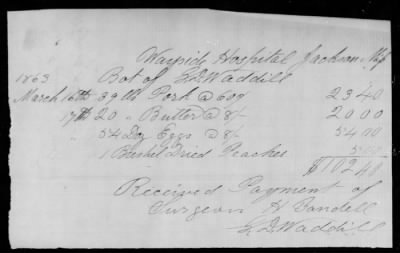 Wayside Hospital Jackson Miss
1863 Bot of G D Waddill
March 16th 39 lbs Pork @ 60¢ 23 40
17th 20 " Butter @ $1- 20 00
54 Doz Eggs @ $1- 54 00
1 Bushel Dried Peaches 5.00
$102.40
Received Payment of
Surgeon H Yandell
G D Waddill